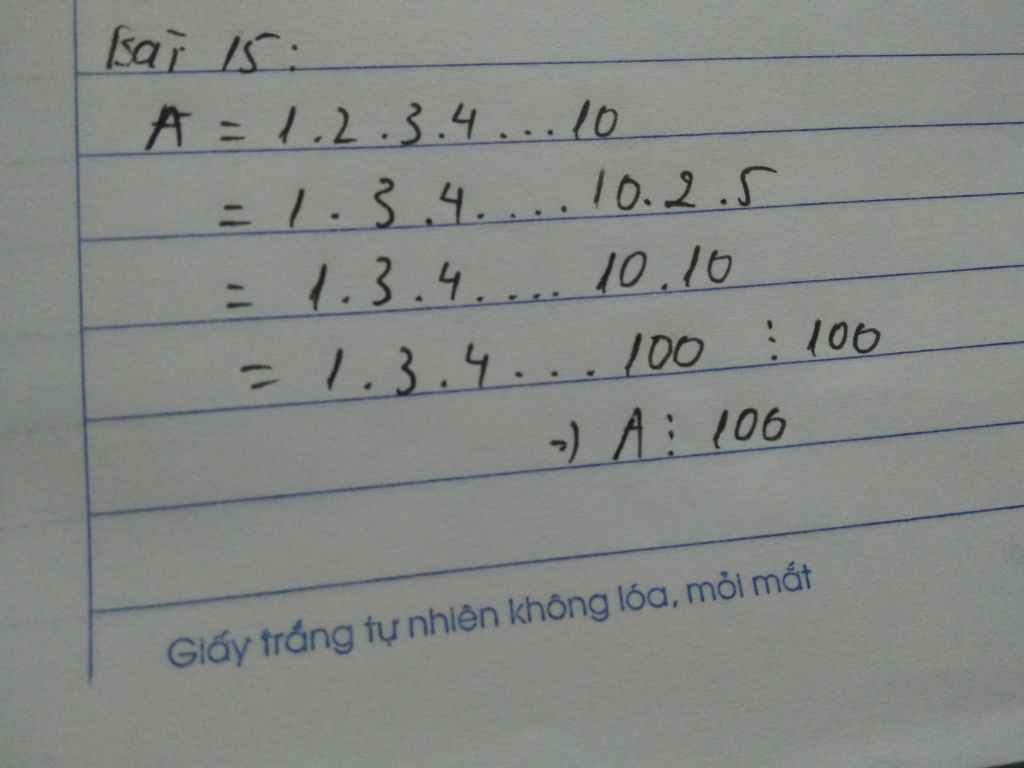 Bài 15:
A = 1.2.3.4...10
= 1.3.4....10.2.5
= 1.3.4....10.10
= 1.3.4...100 ⋮ 100
=) A ⋮ 100
Giấy trắng tự nhiên không lóa, mỏi mắt